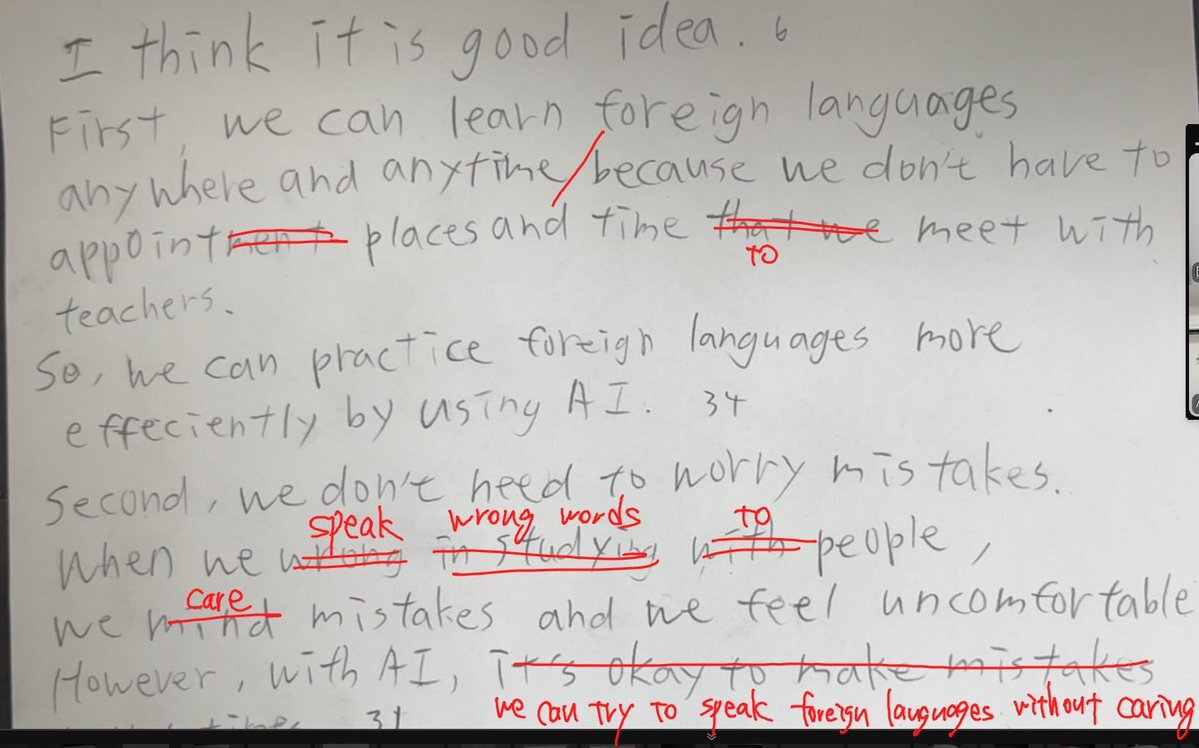 I think it is good idea. 6
First, we can learn foreign languages
anywhere and anytime / because we don't have to
appointment places and time that we meet with
to
teachers.
So, we can practice foreign languages more
effeciently by using AI. 34
Second, we don't need to worry mistakes.
speak wrong words to
When we wrong in studying with people,
care
we mind mistakes and we feel uncomfortable
However, with AI, it's okay to make mistakes
we can try to speak foreign languages without caring
time 31